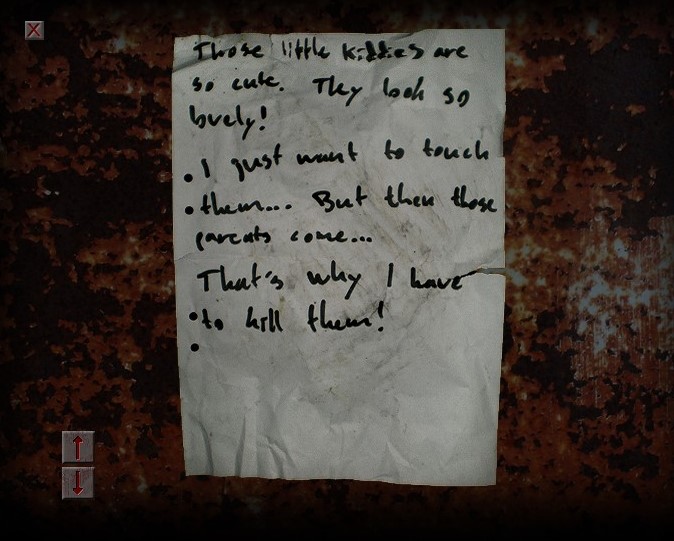 Those little kiddies are
so cute. They look so
lovely!
• I just want to touch
• them... But then those
parents come...
That's why I have
• to kill them!
•